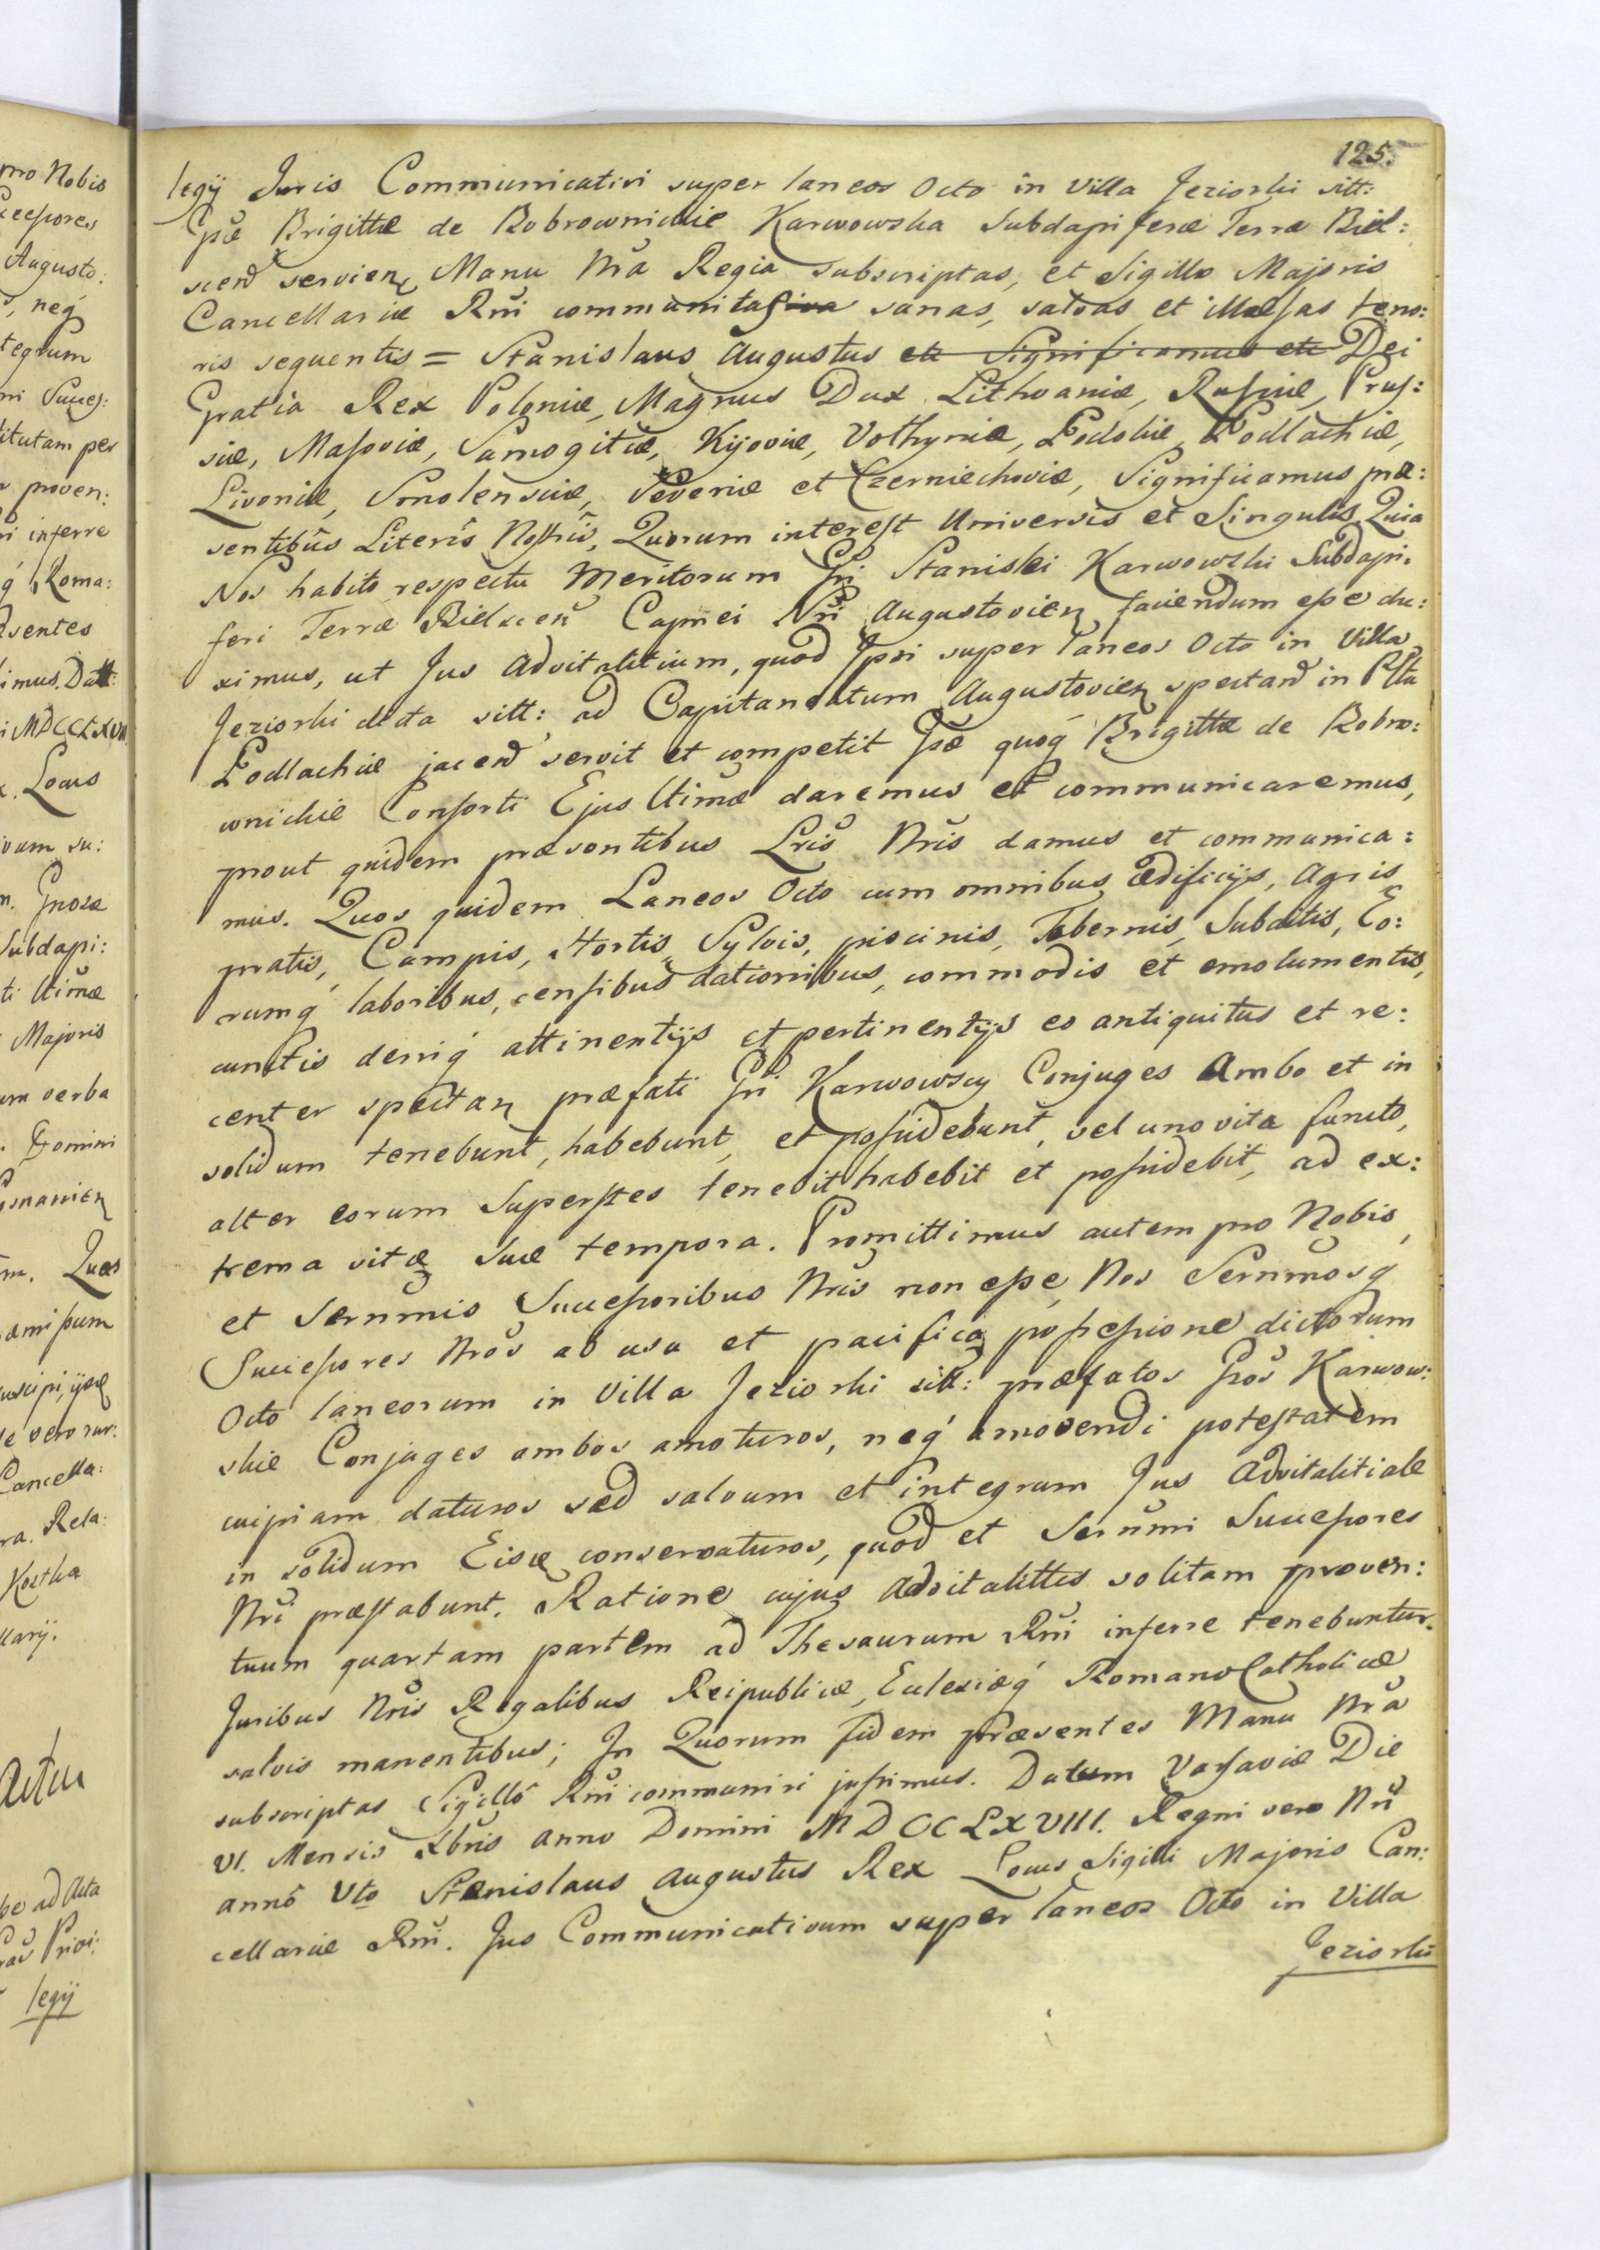 125.
legÿ Juris Communicativi super laneos Octo in Villa Jeziorki sitt:
Gsæ Brigittæ de Bobrownickie Karwowska Subdapiferæ Terræ Biel:
scen̄ servien Manu Nr̄a Regia subscriptas, et Sigillo Majoris
Cancellariæ Rn̄i communitas sanas, salvas et illæsas teno:
ris sequentis = Stanislaus Augustus etc Significamus etc Dei
Gratia Rex Poloniæ, Magnus Dux Lithvaniæ, Russiæ, Prus:
siæ, Masoviæ, Samogitiæ, Kijoviæ, Volhyniæ, Podoliæ, Podlachiæ,
Livoniæ, Smolensciæ, Severiæ et Czerniechoviæ, Significamus præ:
sentibus Literis Nostris, Quorum interest Universis et Singulis Quia
Nos habito respectu Meritorum Gsi Stanislai Karwowski Subdapi:
feri Terræ Bielscen̄ Capnei Nr̄i Augustovien faciendum esse du:
ximus, ut Jus Advitalitium, quod Ipsi super laneos Octo in Villa
Jeziorki dicta sitt: ad Capitaneatum Augustovien spectand in Pltu
Podlachiæ jacend servit et competit Gsæ quoq́ Brigittæ de Bobro:
wnickie Consorti Ejus ltimæ daremus et communicaremus,
prout quidem præsentibus Lris Nris damus et communica:
mus. Quos quidem Laneos Octo cum omnibus ædificijs, Agris
pratis, Campis, Hortis, Sylvis, piscinis, Tabernis, Subditis, Eo:
rumq́ laboribus, censibus dationibus, commodis et emolumentis,
cunctis deniq́ attinentijs et pertinentijs eo antiquitus et re:
center spectan præfati Gsi Karwowscy Conjuges Ambo et in
solidum tenebunt, habebunt, et possidebunt, vel uno vita functo,
alter eorum Superstes tenebit habebit et possidebit, ad ex:
trema vitæ suæ tempora. Promittimus autem pro Nobis,
et Sern̄mis Successoribus Nris non esse Nos Sern̄mosq́
Successores Nros ab usu et pacifica possessione dictorum
Octo laneorum in Villa Jeziorki sitt: præfatos Gsos Karwow:
skie Conjuges ambos amoturos, neq́ amovendi potestatem
cuipiam daturos sed salvum et integrum Jus Advitalitiale
in solidum Eisq́ conservaturos, quod et Sern̄mi Successores
Nri præstabunt. Ratione cujus Advitalittis solitam proven:
tuum quartam partem ad Thesaurum Rn̄i inferre tenebuntur.
Juribus Nris Regalibus Reipublicæ, Eclesiæq́ Romano Catholicæ
salvis manentibus; In Quorum fidem præsentes Manu Nr̄a
subscriptas Sigillo Rn̄i communiri jussimus. Datum Varsaviæ Die
VI. Mensis Xbris Anno Domini MDCCLXVIII. Regni vero Nri
anno Vto Stanislaus Augustus Rex Locus Sigilli Majoris Can:
cellariæ Rn̄i. Jus Communicativum super laneos Octo in Villa
Jeziorki